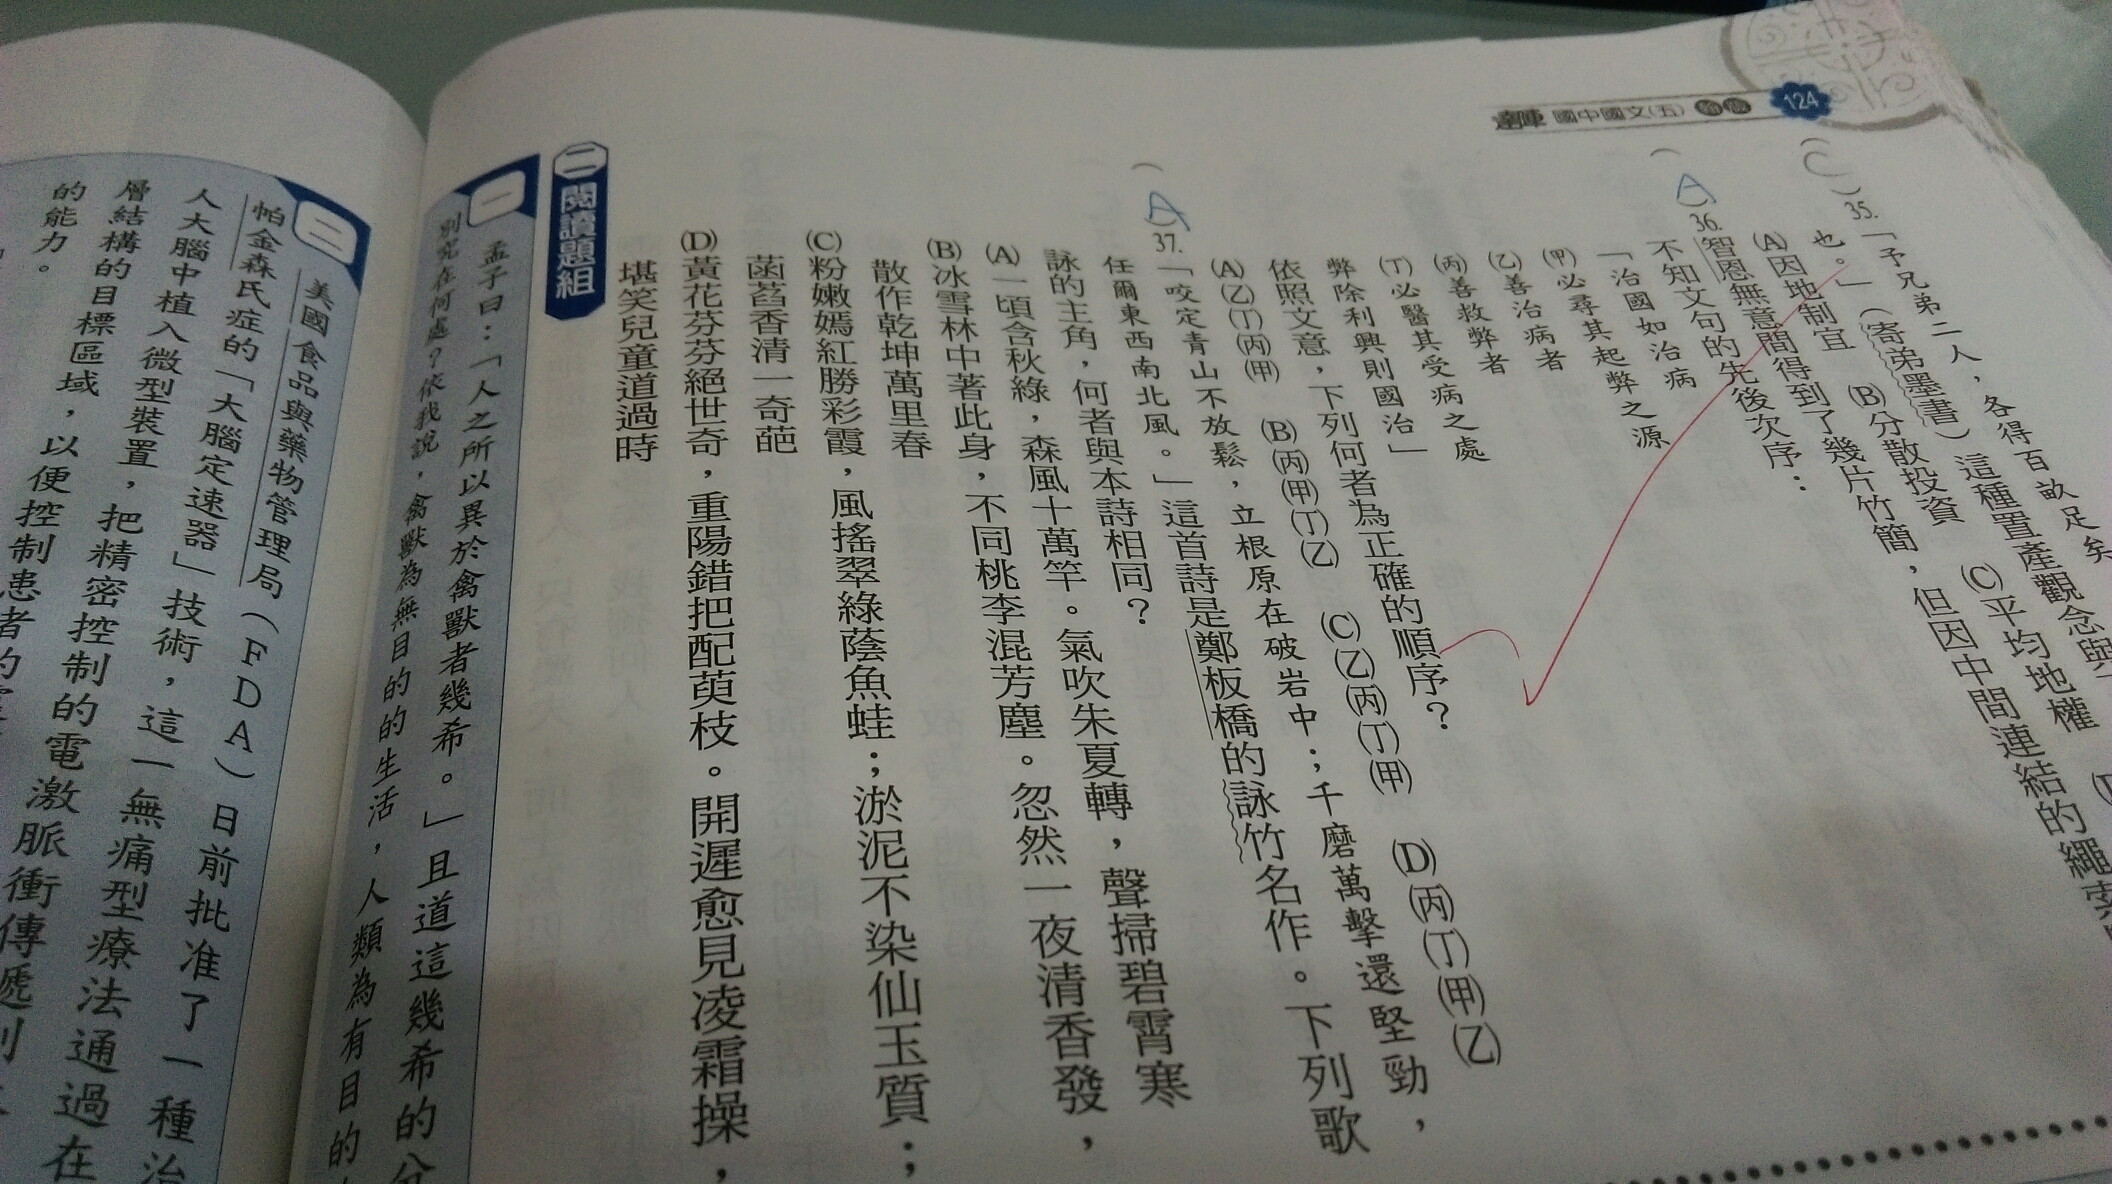 124
達陣 國中國文(五)
(C)35.「予兄弟二人，各得百畝足矣
也。」（寄弟墨書）這種置產觀念與
(A)因地制宜 (B)分散投資 (C)平均地權
(A)36.智恩無意間得到了幾片竹簡，但因中間連結的繩索
不知文句的先後次序：
「治國如治病
(甲)必尋其起弊之源
(乙)善治病者
(丙)善救弊者
(丁)必醫其受病之處
弊除利興則國治」
依照文意，下列何者為正確的順序？
(A)(乙)(丁)(丙)(甲) (B)(丙)(甲)(丁)(乙) (C)(乙)(丙)(丁)(甲) (D)(丙)(丁)(甲)(乙)
(A)37.「咬定青山不放鬆，立根原在破岩中；千磨萬擊還堅勁，
任爾東西南北風。」這首詩是鄭板橋的詠竹名作。下列歌
詠的主角，何者與本詩相同？
(A)一頃含秋綠，森風十萬竿。氣吹朱夏轉，聲掃碧霄寒
(B)冰雪林中著此身，不同桃李混芳塵。忽然一夜清香發，
散作乾坤萬里春
(C)粉嫩嫣紅勝彩霞，風搖翠綠蔭魚蛙；淤泥不染仙玉質；
菡萏香清一奇葩
(D)黃花芬芬絕世奇，重陽錯把配萸枝。開遲愈見凌霜操，
堪笑兒童道過時
二 閱讀題組
一
孟子曰：「人之所以異於禽獸者幾希。」且道這幾希的分
別究在何處？依我說，禽獸為無目的的生活，人類為有目的的
二
美國食品與藥物管理局（FDA）日前批准了一種治
帕金森氏症的「大腦定速器」技術，這一無痛型療法通過在
人大腦中植入微型裝置，把精密控制的電激脈衝傳遞到
層結構的目標區域，以便控制患者的
的能力。